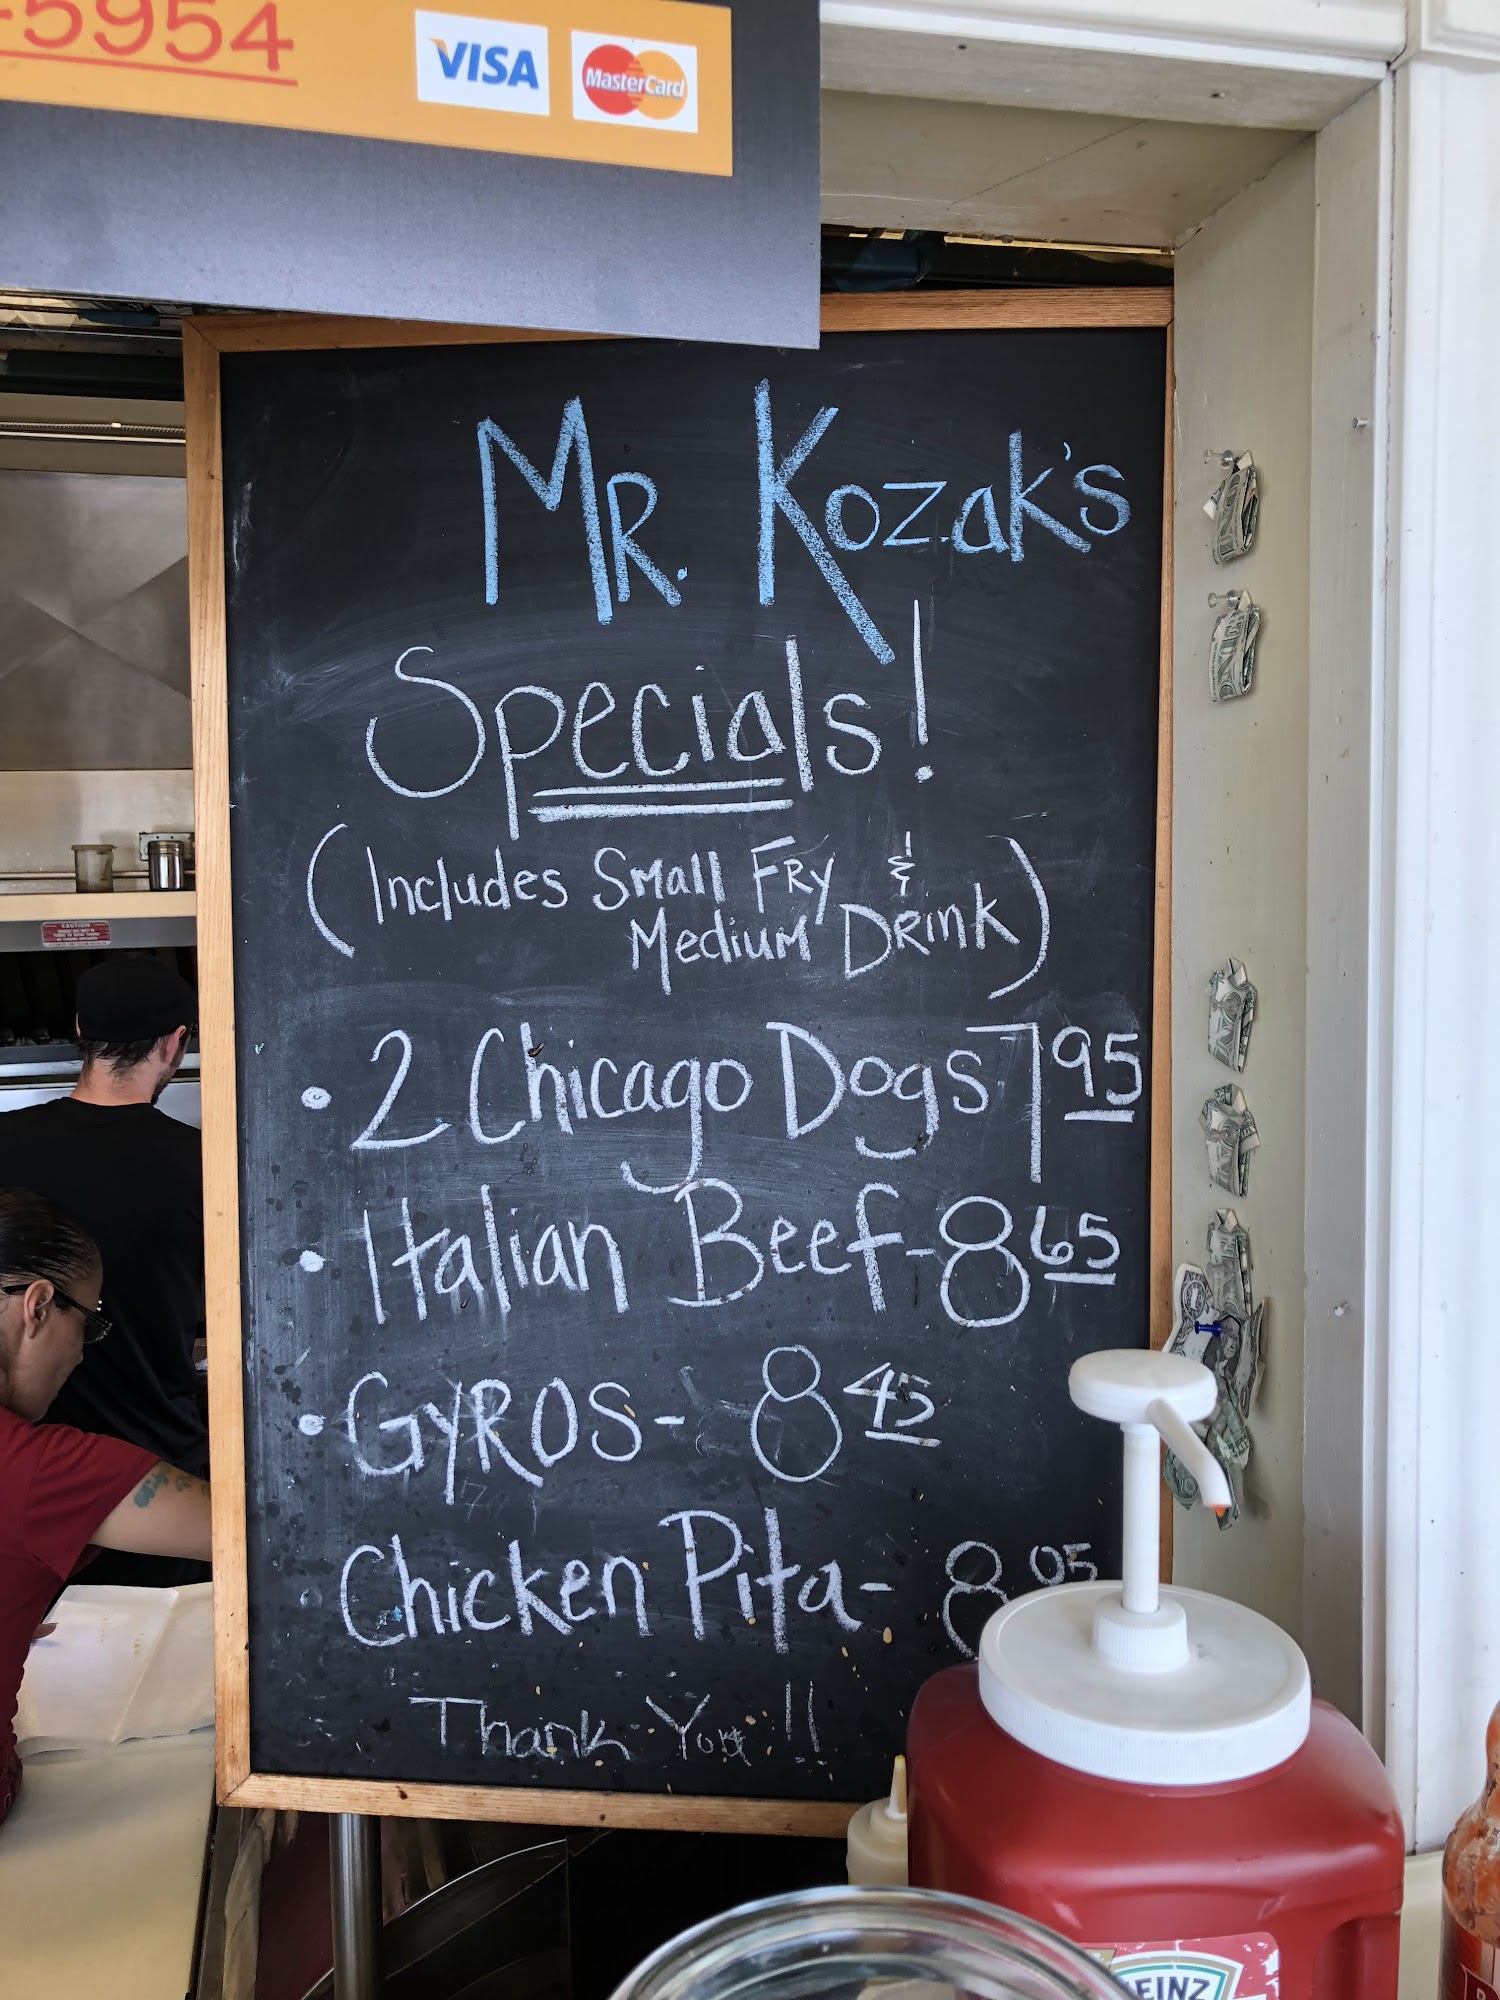 -5954
VISA
MasterCard
MR. Kozak's
Specials!
(Includes Small FRY &
Medium DRink)
• 2 Chicago Dogs 7 95
• Italian Beef - 8 65
• GYROS - 8 45
Chicken Pita - 8 05
Thank You !!
CAUTION
EINZ